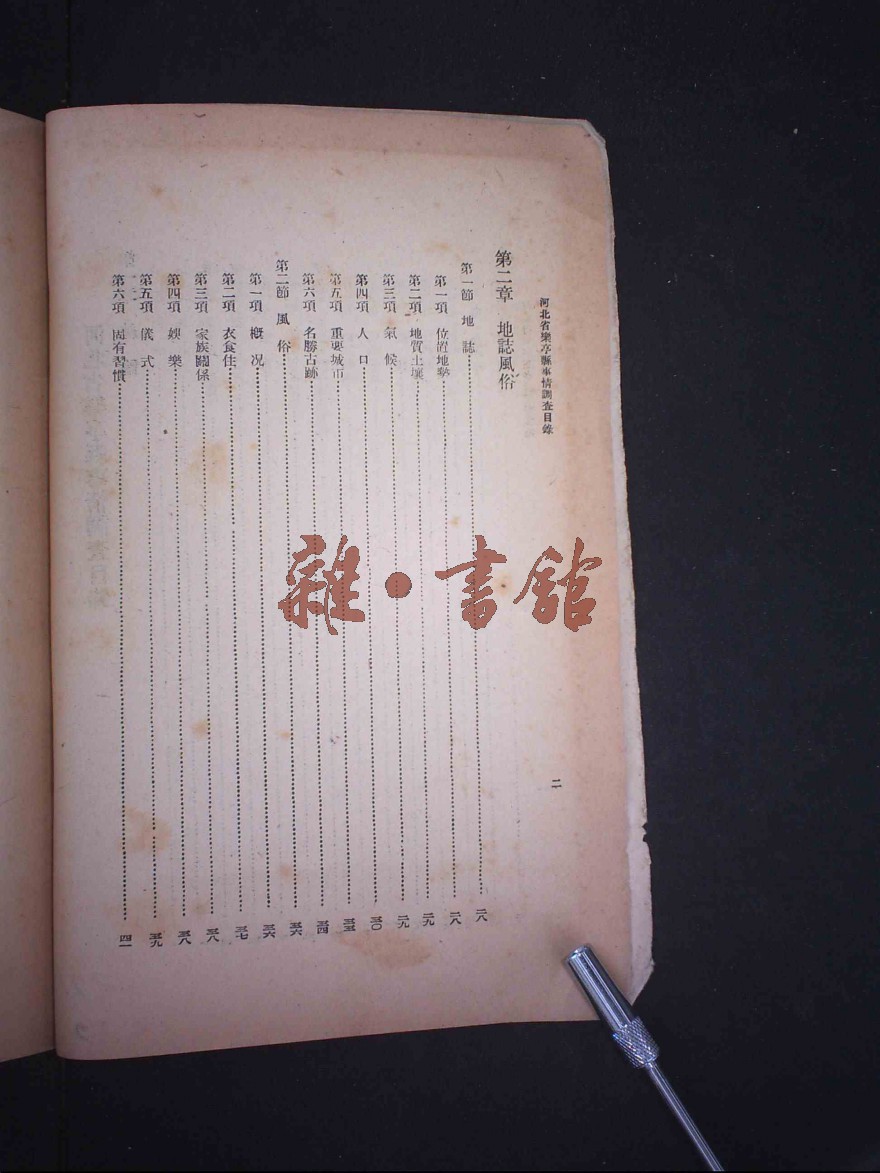 河北省樂亭縣事情調查目錄
二
第二章 地誌風俗
第一節 地誌……二八
第一項 位置地勢……二八
第二項 地質土壤……二九
第三項 氣候……二九
第四項 人口……三〇
第五項 重要城市……三三
第六項 名勝古跡……三四
第二節 風俗……三六
第一項 概况……三六
第二項 衣食住……三七
第三項 家族關係……三八
第四項 娛樂……三八
第五項 儀式……三九
第六項 固有習慣……四一
雜·書館